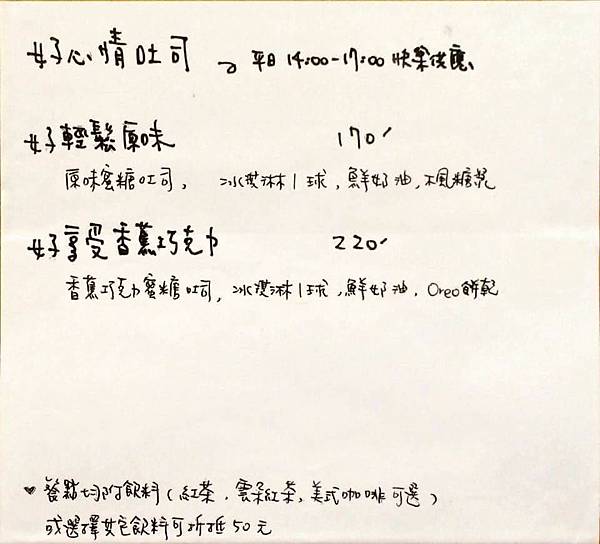 好心情吐司 平日 14:00-17:00 快樂供應、
好輕鬆原味 170
原味蜜糖吐司, 冰淇淋1球,鮮奶油,楓糖漿
好享受香蕉巧克力 220
香蕉巧克力蜜糖吐司,冰淇淋1球,鮮奶油,Oreo餅乾
♥ 餐點均附飲料(紅茶.雲朵紅茶,美式咖啡可選)
或選擇其它飲料可折抵50元